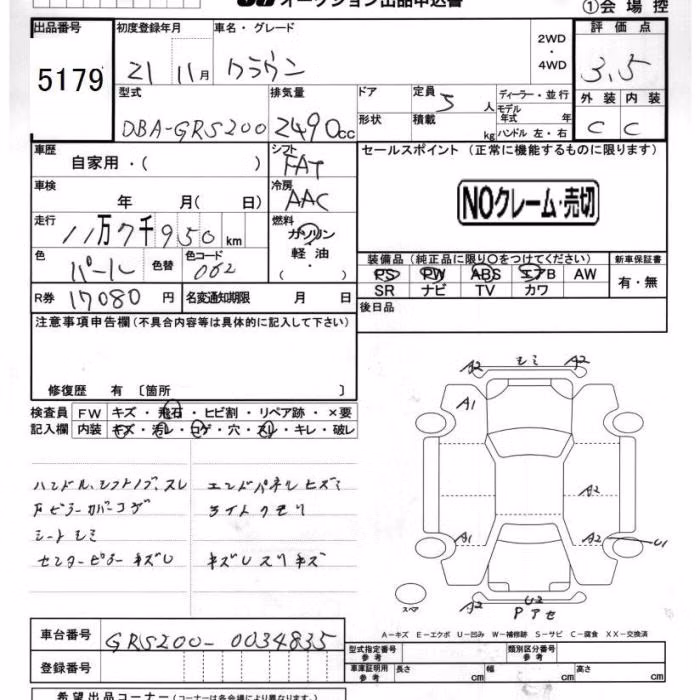 オークション出品申込書
①会場控
出品番号 初度登録年月 車名・グレード 2WD・4WD 評価点
5179 21年 11月 クラウン 3.5
型式 排気量 ドア 定員 5人 ディーラー・並行 外装 内装
DBA-GRS200 2490cc 形状 積載 kg モデル年式 年 ハンドル 左・右 C C
車歴 自家用・( ) シフト FAT セールスポイント (正常に機能するものに限ります)
車検 年 月( 日) 冷房 AAC NOクレーム・売切
走行 11万7千950km 燃料 ガソリン
色 パール 色替 色コード 062 軽油
( ・ )
装備品 (純正品に限り○をつけてください) 新車保証書
PS PW ABS エアB AW 有・無
SR ナビ TV カワ
R券 17080円 名変通知期限 月 日 後日品
注意事項申告欄 (不具合内容等は具体的に記入して下さい)
修復歴 有 〔箇所 〕
検査員 FW キズ・飛石・ヒビ割・リペア跡・×要
記入欄 内装 キズ・汚レ・コゲ・穴・スレ・キレ・破レ
ハンドル、シフトノブ、スレ エンドパネルヒズミ
カバーコゲ ライトクモリ
シートシミ
センターピラーキズU キズUスリキズ
A2 シミ A2
A1
A2
A1 A2 U1
A2 U2
Pアセ
スペア
A―キズ E―エクボ U―凹み W―補修跡 S―サビ C―腐食 XX―交換済
車台番号 GRS200-0034835
登録番号
型式指定番号 参考 類別区分番号 参考
車庫証明用 参考 長さ cm 幅 cm 高さ cm
希望出品コーナー (コーナーは各会場により異なります。)